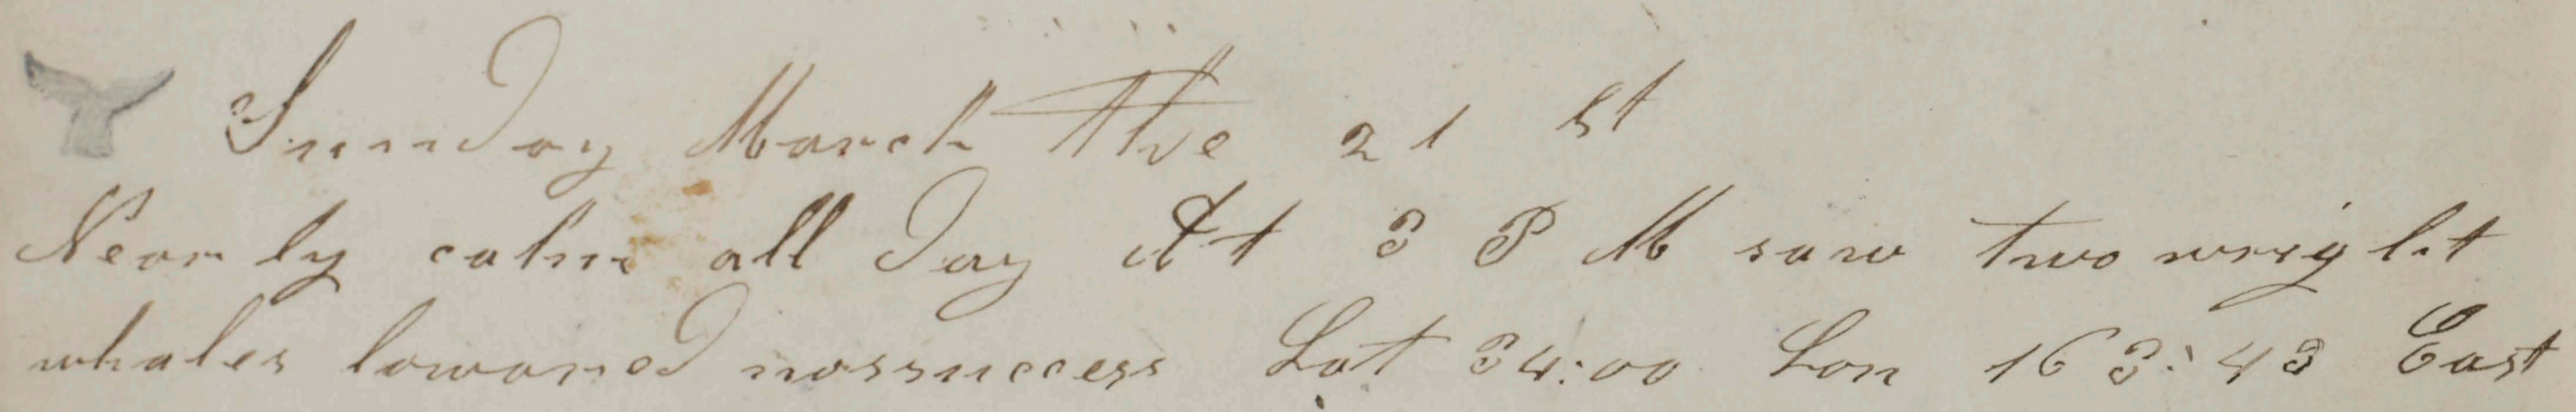 Sunday March the 21 st
Nearly calm all day At 3 P M saw two wright
whales lowared nossuccess Lat 34:00 Lon 163:43 East